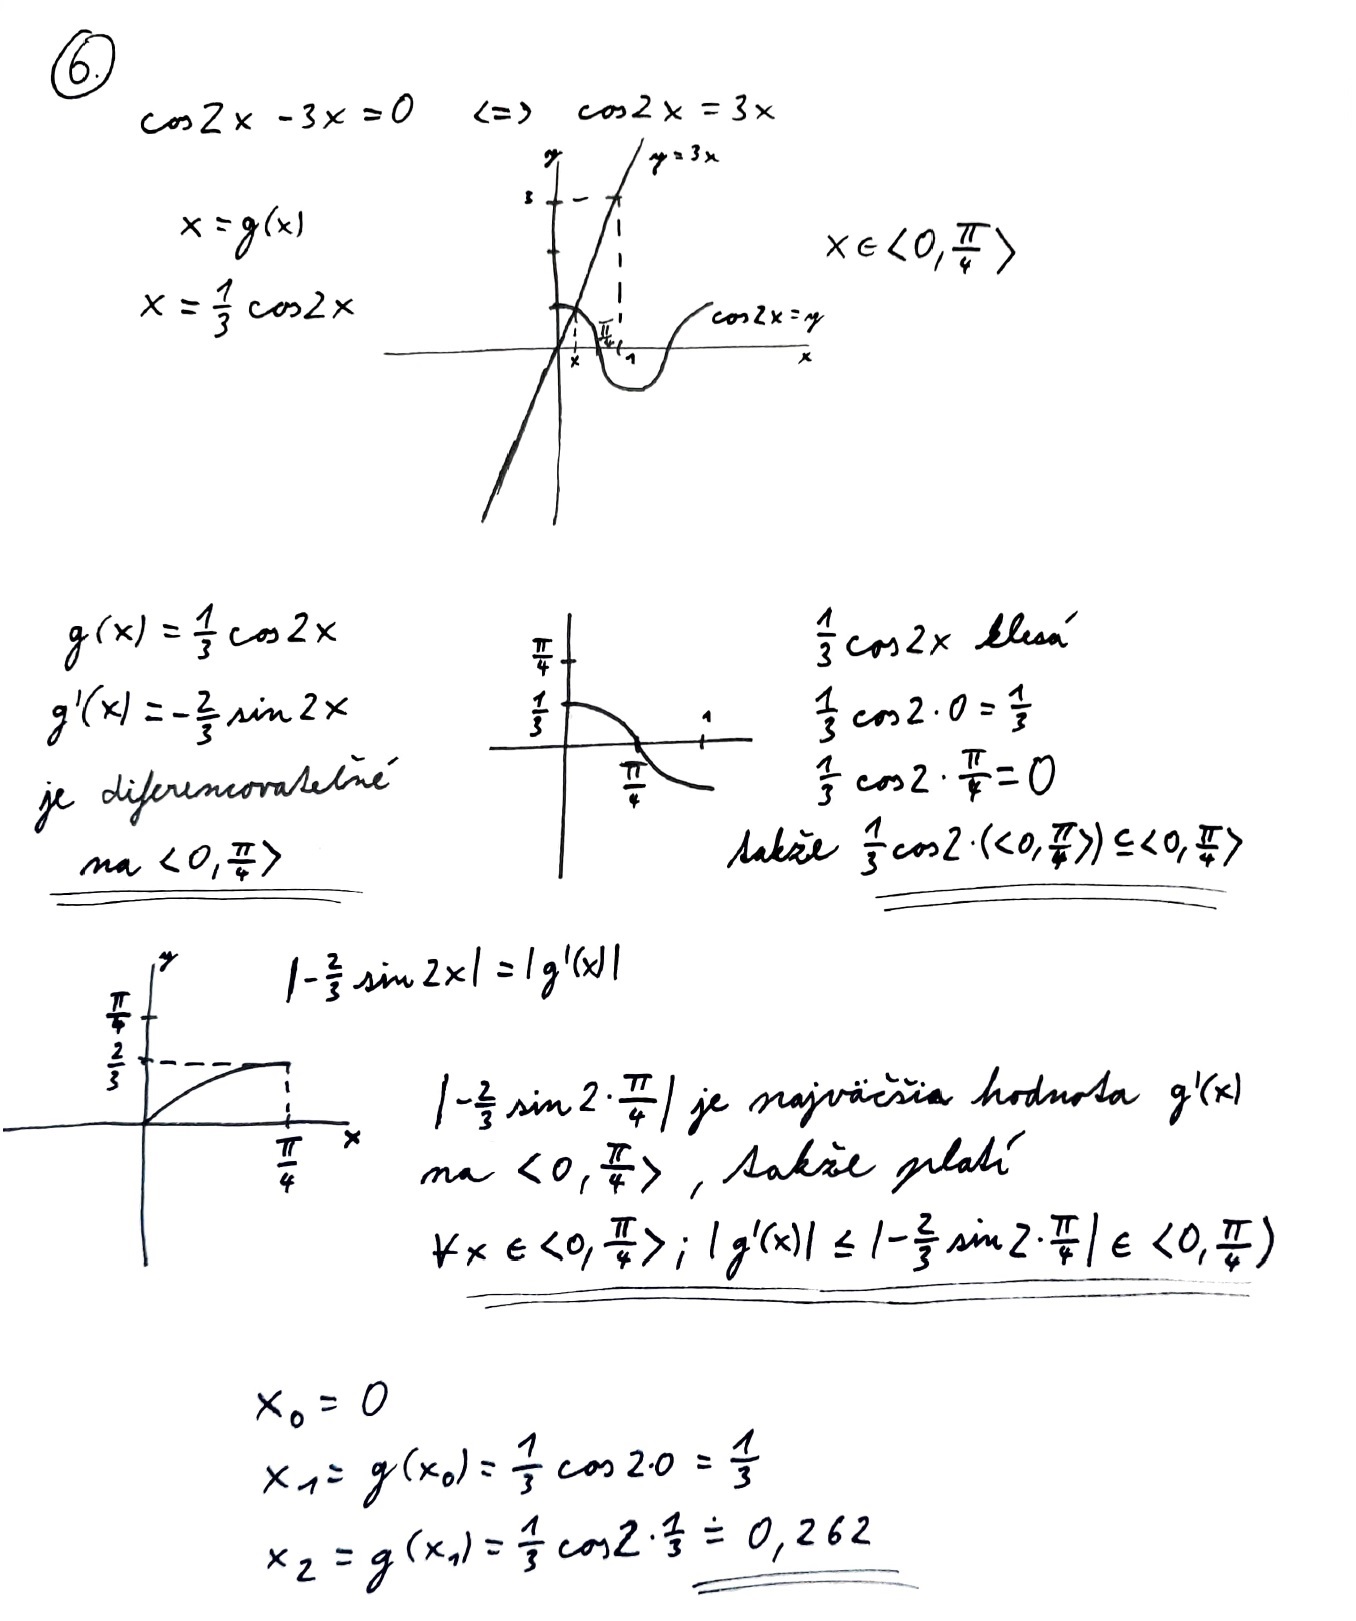 6.
cos2x - 3x = 0 <=> cos2x = 3x
y
y = 3x
3
x = g(x)
x ∈ <0, π/4>
x = 1/3 cos2x
cos2x = y
π/4
x 1 x
g(x) = 1/3 cos2x
g'(x) = -2/3 sin2x
je diferencovateľné
na <0, π/4>
π/4
1/3
1
π/4
1/3 cos2x klesá
1/3 cos2·0 = 1/3
1/3 cos2·π/4 = 0
takže 1/3 cos2·(<0, π/4>) ⊆ <0, π/4>
y
π/4
2/3
x
π/4
|-2/3 sin2x| = |g'(x)|
|-2/3 sin2·π/4| je najväčšia hodnota g'(x)
na <0, π/4>, takže platí
∀x ∈ <0, π/4>; |g'(x)| ≤ |-2/3 sin2·π/4| ∈ <0, π/4)
x₀ = 0
x₁ = g(x₀) = 1/3 cos2·0 = 1/3
x₂ = g(x₁) = 1/3 cos2·1/3 ≐ 0,262